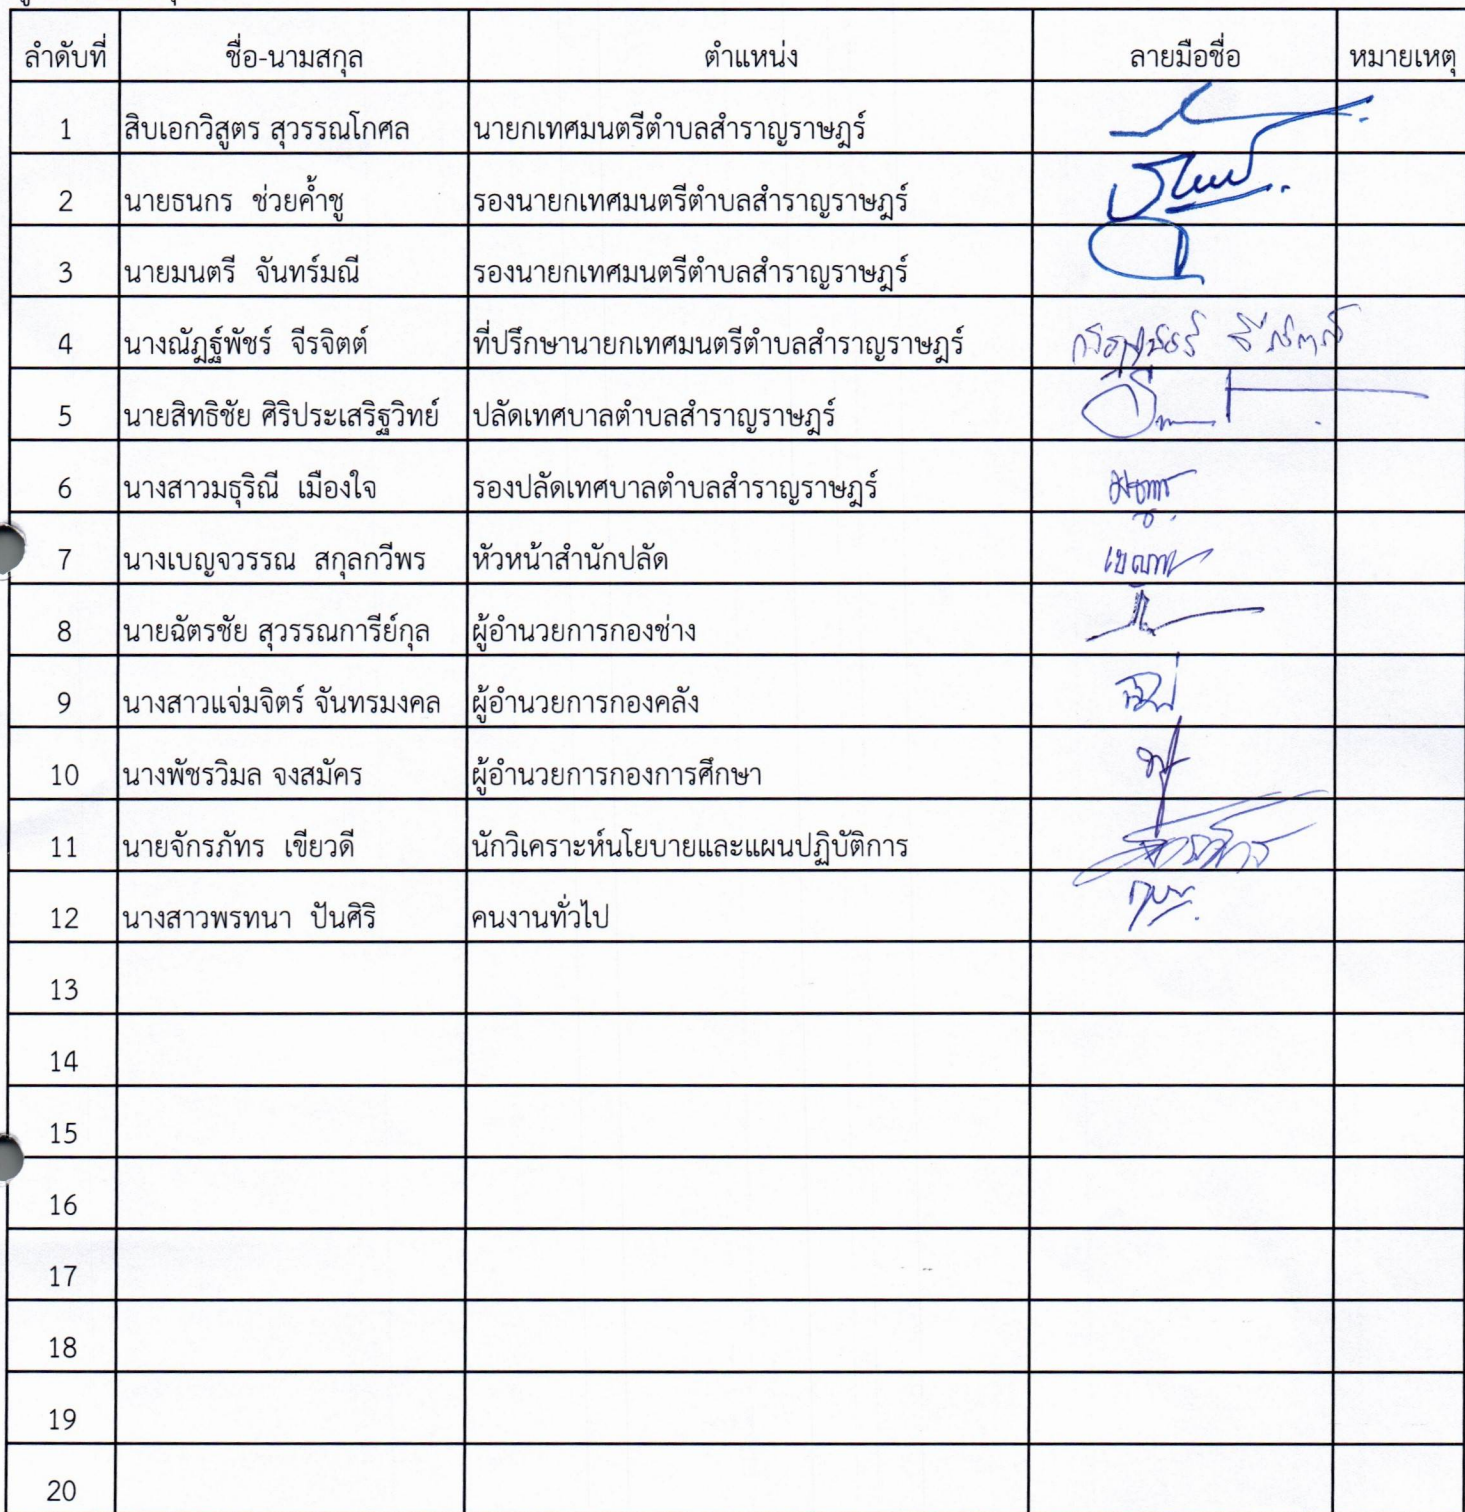 ลำดับที่ ชื่อ-นามสกุล ตำแหน่ง ลายมือชื่อ หมายเหตุ
1 สิบเอกวิสูตร สุวรรณโกศล นายกเทศมนตรีตำบลสำราญราษฎร์
2 นายธนกร ช่วยค้ำชู รองนายกเทศมนตรีตำบลสำราญราษฎร์
3 นายมนตรี จันทร์มณี รองนายกเทศมนตรีตำบลสำราญราษฎร์
4 นางณัฏฐ์พัชร์ จีรจิตต์ ที่ปรึกษานายกเทศมนตรีตำบลสำราญราษฎร์
5 นายสิทธิชัย ศิริประเสริฐวิทย์ ปลัดเทศบาลตำบลสำราญราษฎร์
6 นางสาวมธุริณี เมืองใจ รองปลัดเทศบาลตำบลสำราญราษฎร์
7 นางเบญจวรรณ สกุลกวีพร หัวหน้าสำนักปลัด
8 นายฉัตรชัย สุวรรณการีย์กุล ผู้อำนวยการกองช่าง
9 นางสาวแจ่มจิตร์ จันทรมงคล ผู้อำนวยการกองคลัง
10 นางพัชรวิมล จงสมัคร ผู้อำนวยการกองการศึกษา
11 นายจักรภัทร เขียวดี นักวิเคราะห์นโยบายและแผนปฏิบัติการ
12 นางสาวพรทนา ปันศิริ คนงานทั่วไป
13
14
15
16
17
18
19
20